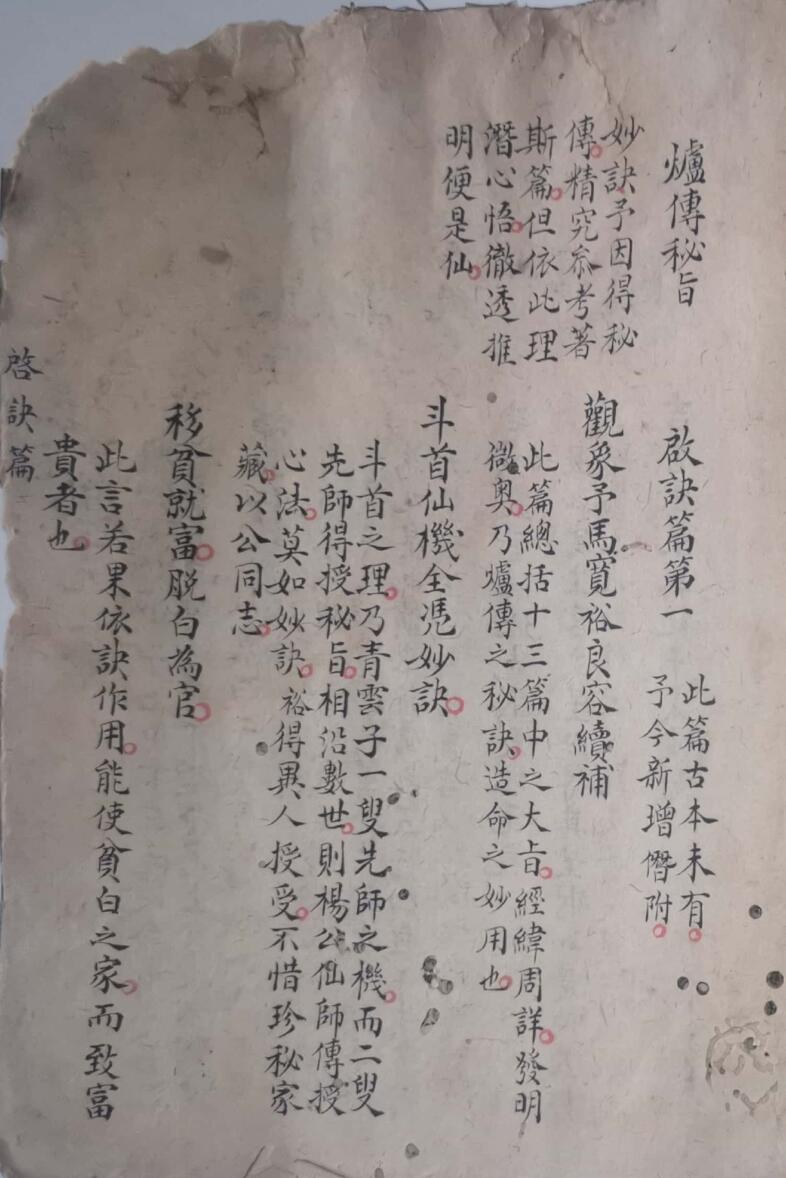 爐傳秘旨
妙訣予因得秘
傳精究叅考著
斯篇但依此理
潛心悟徹透推
明便是仙
啟訣篇第一
此篇古本未有
予今新增僭附
觀象予馬寬裕良容續補
此篇總括十三篇中之大旨經緯周詳發明
微奧乃爐傳之秘訣造命之妙用也
斗首仙機全凴妙訣
斗首之理乃青雲子一叟先師之機而二叟
先師得授秘旨相沿數世則楊公仙師傳授
心法莫如妙訣裕得異人授受不惜珍秘家
藏以公同志
移貧就富脱白為官
此言若果依訣作用能使貧白之家而致富
貴者也
啓訣篇